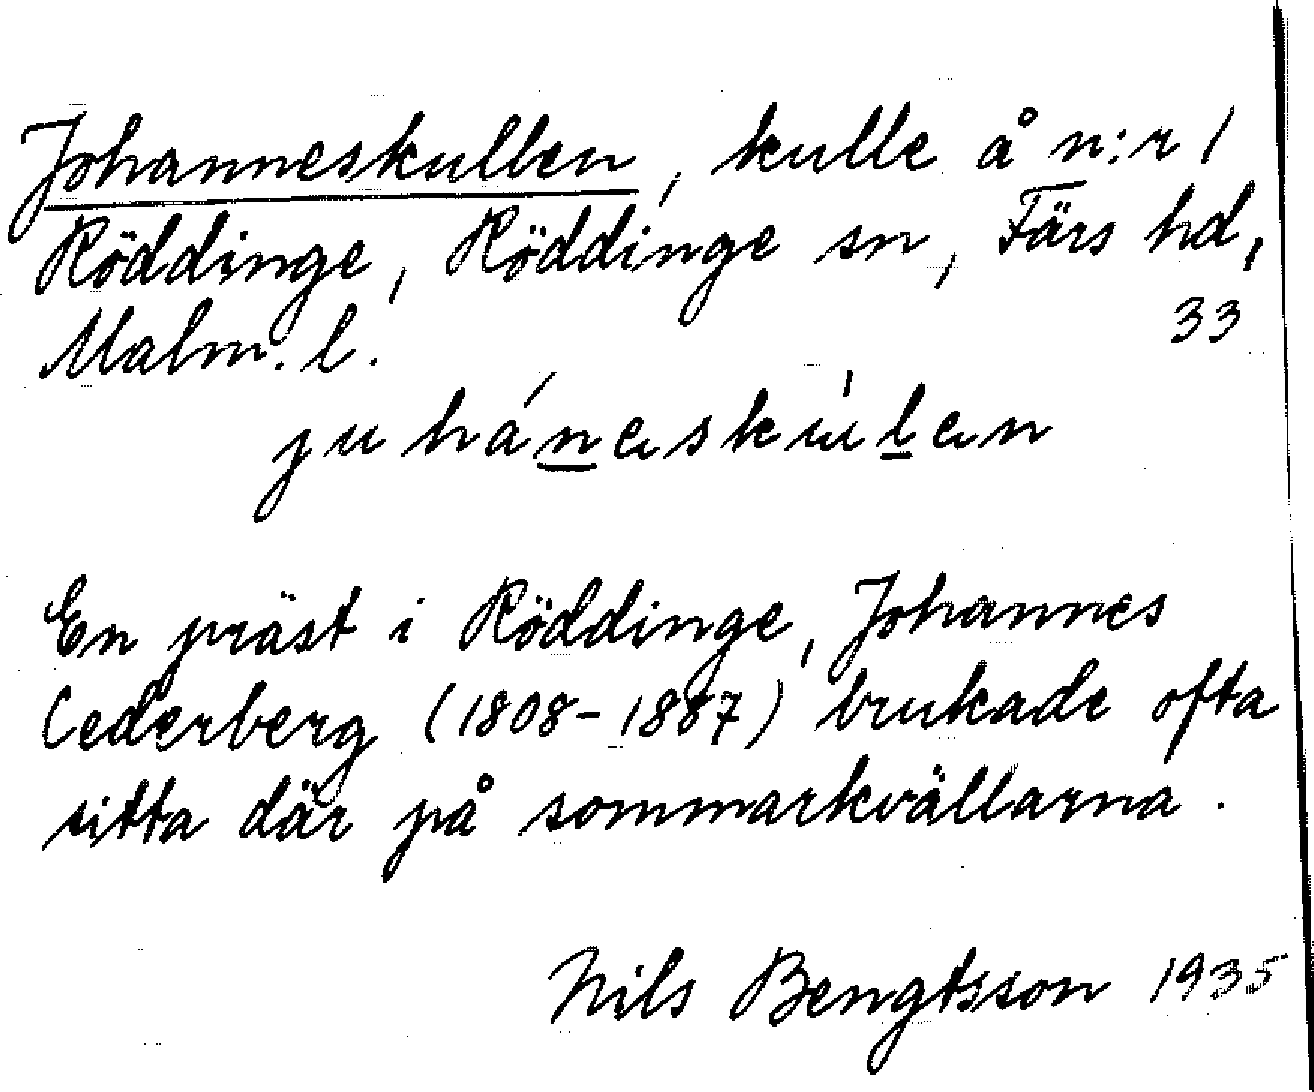 Johanneskullen, kulle å n:r 1
Röddinge, Röddinge sn, Färs hd,
Malm. l.
33
juháneskúlen
En präst i Röddinge, Johannes
Cederberg (1808-1887) brukade ofta
sitta där på sommarkvällarna.
Nils Bengtsson 1935